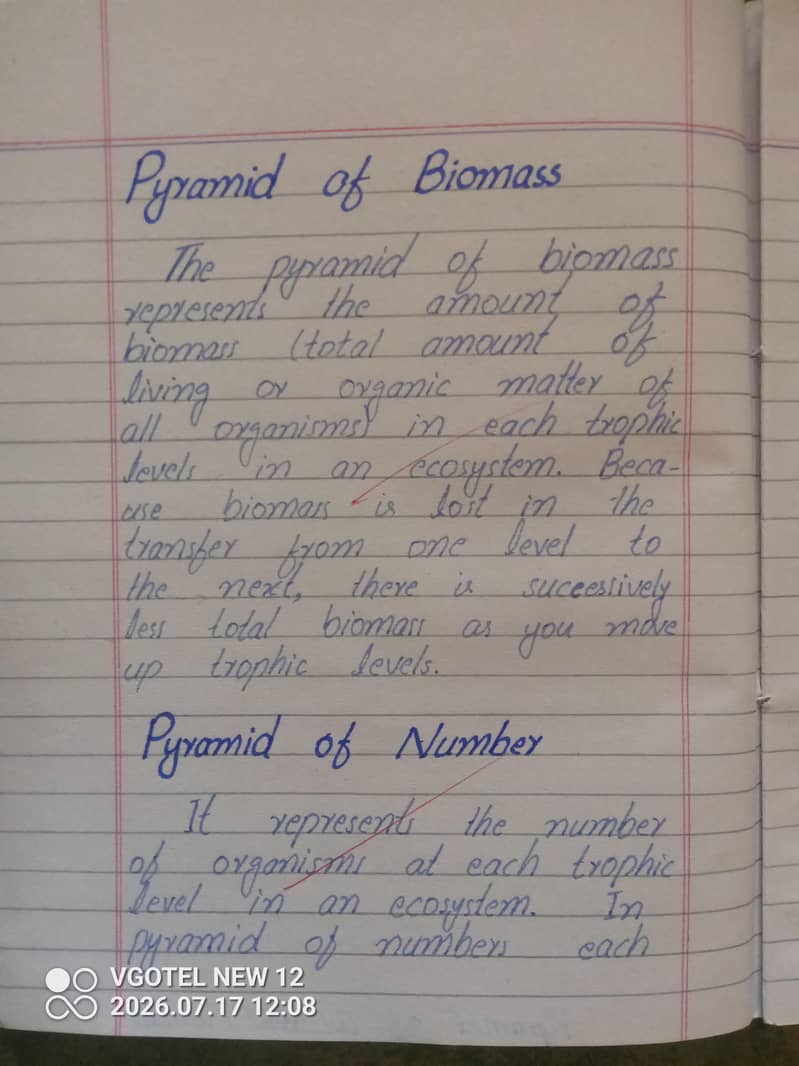 Pyramid of Biomass
The pyramid of biomass
represents the amount of
biomass (total amount of
living or organic matter of
all organisms) in each trophic
levels in an ecosystem. Beca-
use biomass is lost in the
transfer from one level to
the next, there is successively
less total biomass as you move
up trophic levels.
Pyramid of Number
It represents the number
of organisms at each trophic
level in an ecosystem. In
pyramid of numbers each
VGOTEL NEW 12
2026.07.17 12:08